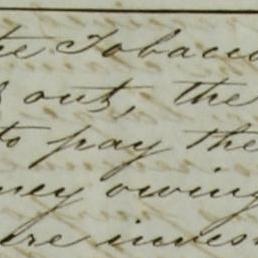 the Tobacco
out, the
to pay the
ney owing
ere inves